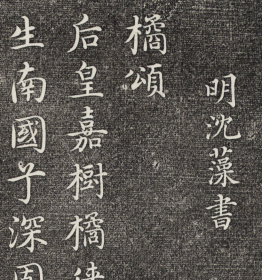 明沈藻書
橘頌
后皇嘉樹橘徠
生南國兮深固